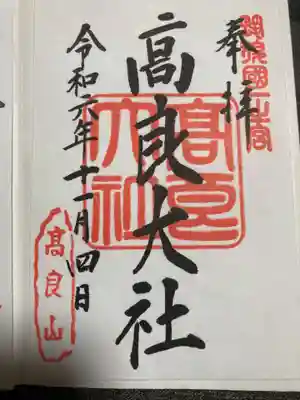 筑後國一之宮
奉拝
高良大社
髙良大社
令和六年十一月四日
高良山